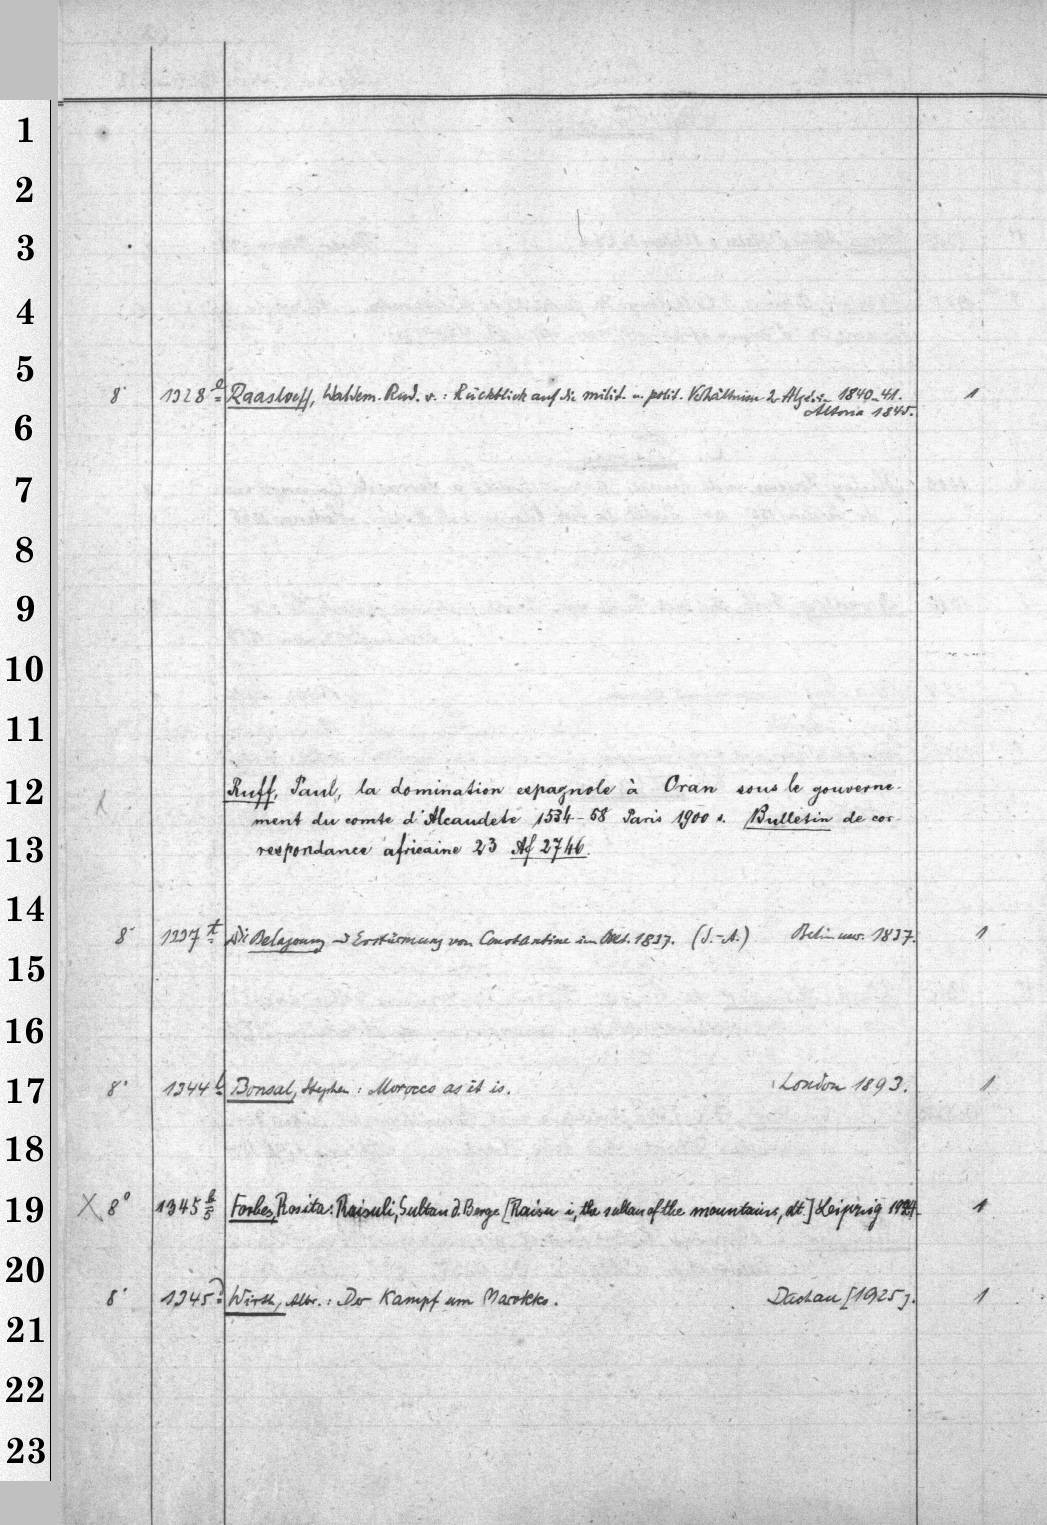 1
2
3
4
5
8° 1328 a Raasloeff, Waldem. Rud. v.: Rückblick auf die milit. u. polit. Verhältnisse d. Algerie 1840-41. 1
Altona 1845.
6
7
8
9
10
11
12 Ruff, Paul, la domination espagnole à Oran sous le gouverne-
ment du comte d'Alcaudete 1534-58 Paris 1900 s. Bulletin de cor-
13 respondance africaine 23 Af 2746.
14
8° 1337 t Die Belagerung u. Erstürmung von Constantine im Oct. 1837. (S.-A.) Berlin usw. 1837. 1
15
16
17 8° 1344 b Bonsal, Stephen: Morocco as it is. London 1893. 1
18
19 X 8° 1345 Forbes, Rosita: Raisuli, Sultan d. Berge [Raisuli, the sultan of the mountains, dt.] Leipzig 1924. 1
20
8° 1345 Wirth, Albr.: Der Kampf um Marokko. Dachau [1925]. 1
21
22
23